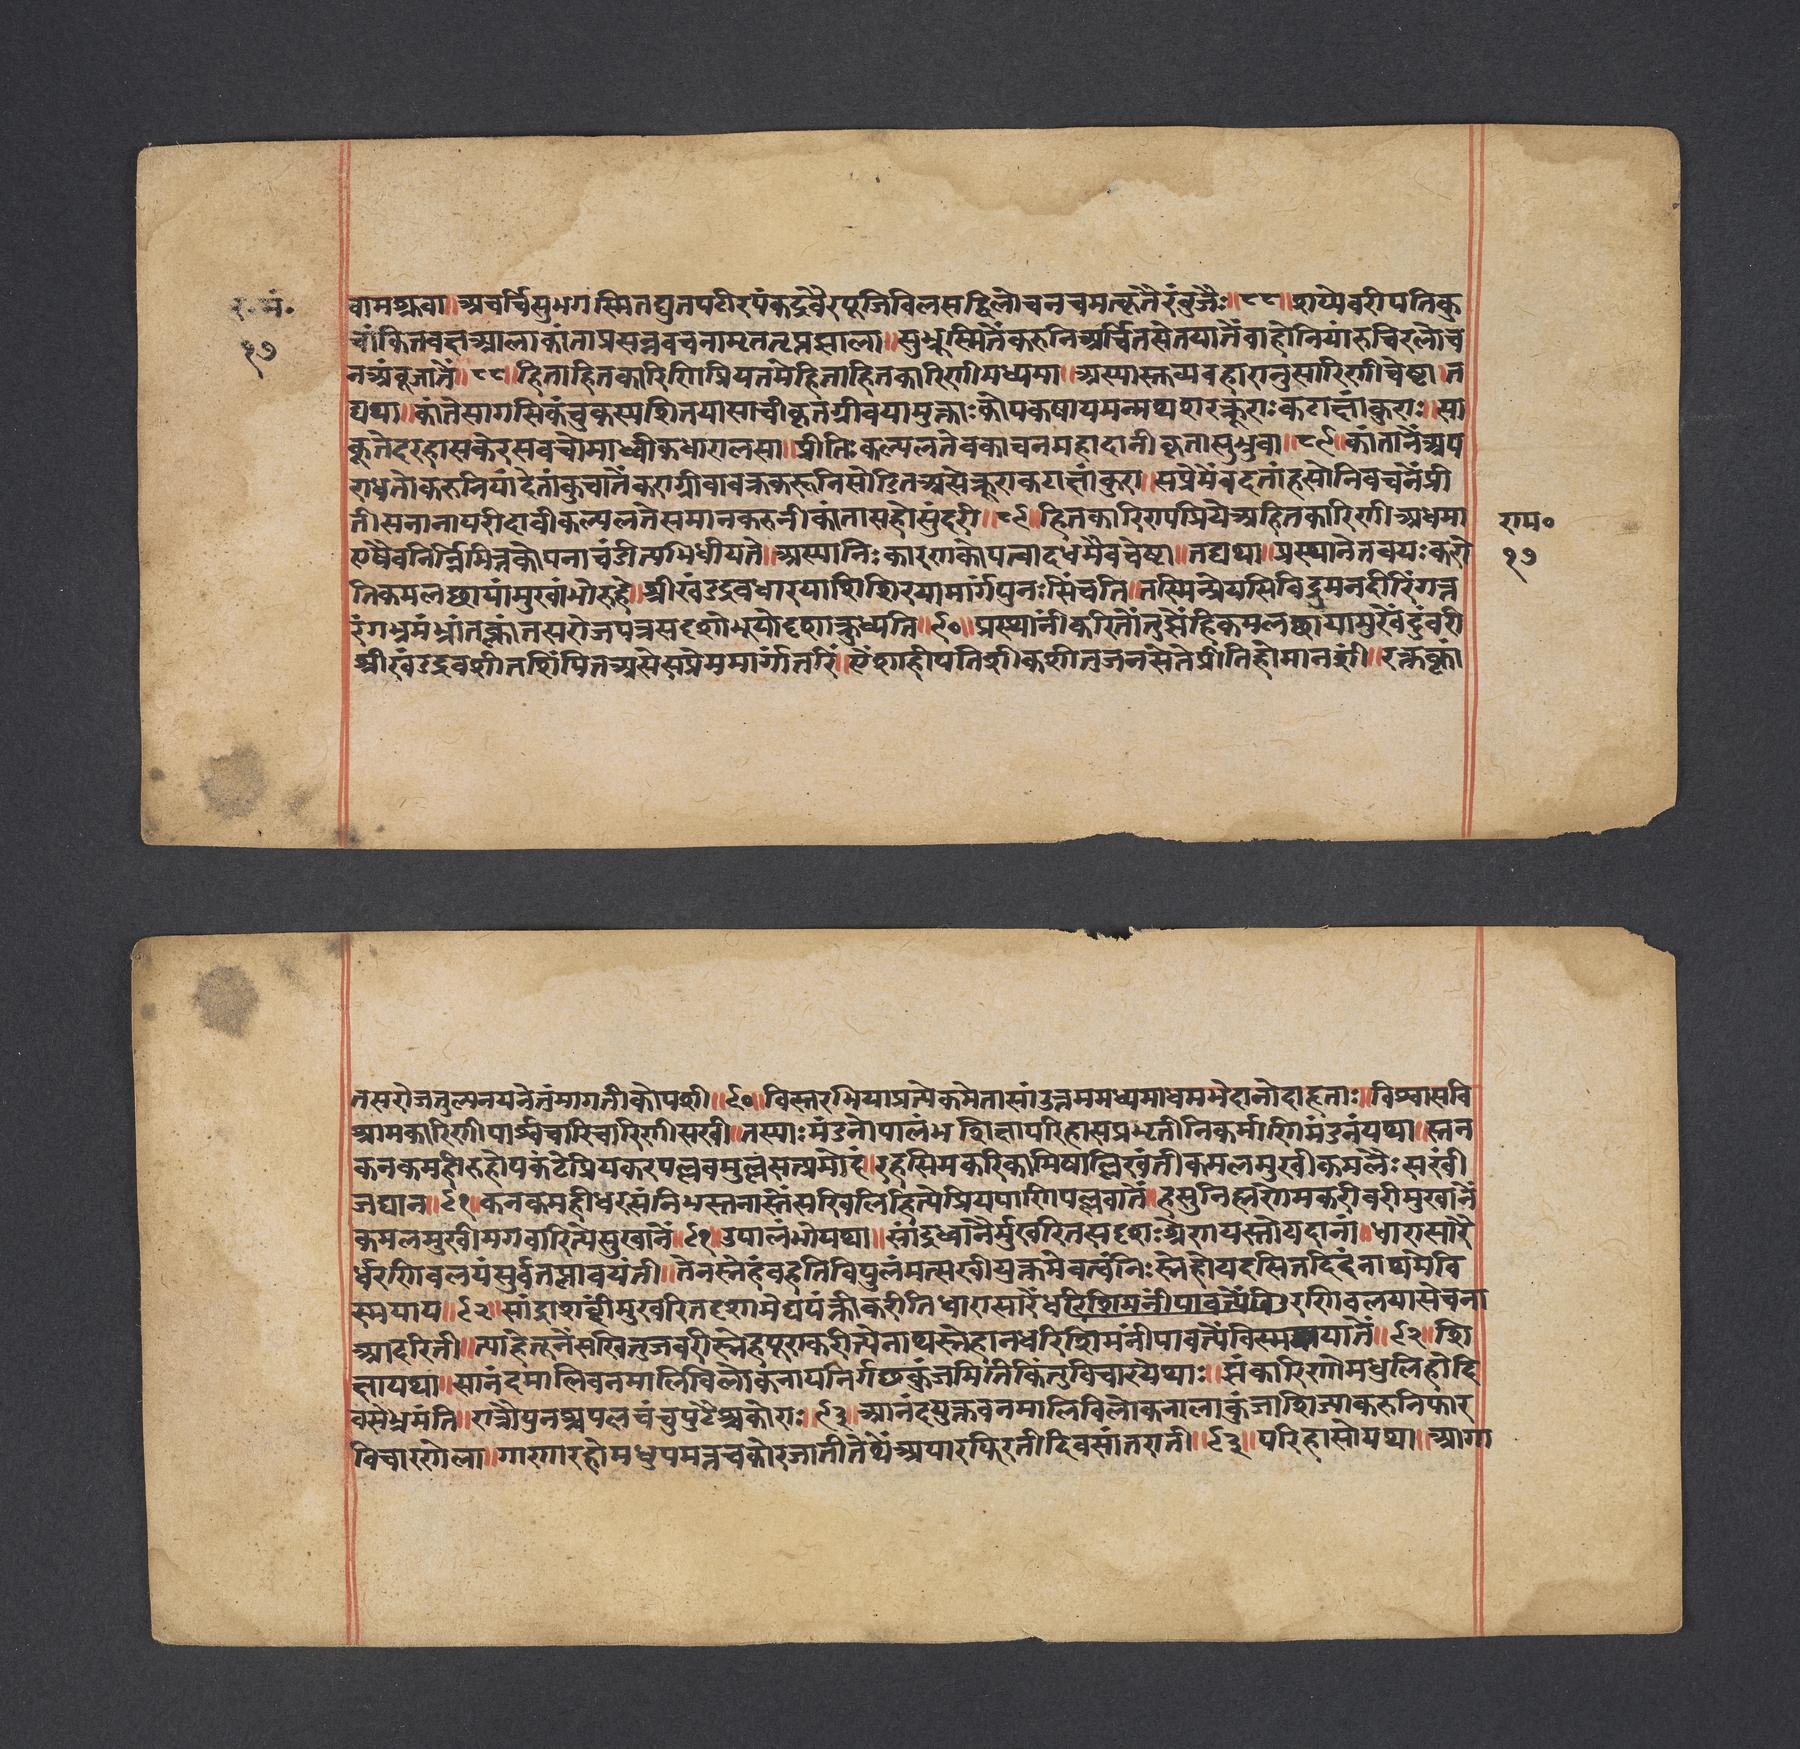 र. मं.
१७
वामभ्रुवा॥अचर्चिसुभगस्मितद्युतपटीरपंकद्रवैरपूजिविलसद्विलोचनचमत्कृतैरंबुजैः॥८८॥शप्येवरीपतिकु
चांकितवक्षआलाकांताप्रसन्नवचनामृततृप्तझाला॥सुभ्रूस्मितेंकरुनिअर्चितसेतयातेंवाहोनियांरुचिरलोच
नअंबूजातें॥८८॥हिताहितकारिणिप्रियतमेहिताहितकारिणीमध्यमा॥अस्यास्तव्यवहारानुसारिणीचेष्टा॥त
द्यथा॥कांतेसागसिकंचुकस्पृशितयासाचीकृतग्रीवयामुक्ताःकोपकषायमन्मथशरक्रूराःकटाक्षांकुराः॥सा
कूतेदरहासकेरसवचोमाध्वीकधारालसा॥प्रीतिःकल्पलतेवकाचनमहादानीकृतासुभ्रुवा॥८९॥कांतानेंअप
राधतोकरुनियांदेतांकुचातेंकराग्रीवावक्रकरूनिसोडितअसेक्रूराकटाक्षांकुरा॥सप्रेमेंवदतांहसोनिवचनेंप्री
तीसनानापरीदावीकल्पलतेसमानकरुनीकांतासहोसुंदरी॥८९॥हितकारिण्यपिप्रियेअहितकारिणीअधमा
एषैवनिर्न्निमित्तकोपनाचंडीत्यभिधीयते॥अस्यानिःकारणकोपत्वादधमैवचेष्टा॥तद्यथा॥प्रस्थानेतवयःकरो
तिकमलछायांमुखांभोरुहे॥श्रीखंडद्रवधारयाशिशिरयामार्गंपुनःसिंचति॥तस्मिन्प्रेयसिविद्रुमनदीरिंगत्त
रंगभ्रमंभ्रांतक्लांतसरोजपत्रसदृशोभूयोदृशाक्रुध्यति॥९०॥प्रस्थानींकीरितोंतुसेंहिकमलछायामुखेंदुंवरी
श्रीखंडद्रवशीतशिंपितअसेसप्रेममार्गांतरिं॥एंशाहीपतिशीकशीतुजनसेतेप्रीतिहोमानशी॥रक्तक्लां
राम०
१७
तसरोजतुल्यनयनेतुंमागतीकोपशी॥९०॥विस्तरभियाप्रत्येकमेतासांउत्तममध्यमाधमभेदानोदाहृताः॥विश्वासवि
श्रामकारिणीपार्श्वचारिचारिणीसखी॥तस्याःमंडनोपालंभशिक्षापरिहासप्रभृतीनिकर्माणिमंडनंयथा॥स्तन
कनकमहीरुहोपकंठेप्रियकरपल्लवमुल्लसत्प्रमोदं॥रहसिमकरिकामिषाल्लिखंतीकमलमुखीकमलैःसखीं
जघान॥९१॥कनकमहीधरसंनिभस्तनास्तंसखिलिहित्येप्रियपाणिपल्लवातें॥हसुनिह्मणेमकरीवरीमुखानें
कमलमुखीमगवारित्येसुखानें॥९१॥उपालंभोयथा॥सांद्रध्वानैर्मुखरितसदृशःश्रेणायस्तोयदानां॥धारासारै
र्धरणिवलयंसुर्वतप्लावयंती॥तेनस्नेहंवहतिविपुलंमत्सखीयुक्तमेवत्वंनिःस्नेहोयदसितदिदंनाथमेवि
स्मयाय॥९२॥सांद्राशब्दींमुखरितदृशामेघपंक्तीकरीतिधारासारेंधरिशिमनींपावत्येंवि
आदरिती॥त्याहेतूनेंसखितुजवरीस्नेहपूराकरीत्येनाथस्नेहानधरिशिमनींपावत्येंविस्मयातें॥९२॥शि
क्षायथा॥सानंदमालिवनमालिविलोकनायनिर्गछकुंजमितिकिंतुविचारयेथाः॥झंकारिणोमधुलिहोदि
वसेभ्रमंति॥रात्रौपुनश्चपलचंचुपुटैश्चकोराः॥९३॥आनंदयुक्तवनमालिविलोकनालाकुंजाशिज्याकरुनिफार
विचारगेला॥गारगारहोमधुपमत्तचकोरजातीतेथेंअपारफिरतीदिवसांतराती॥९३॥परिहासोयथा॥आगा